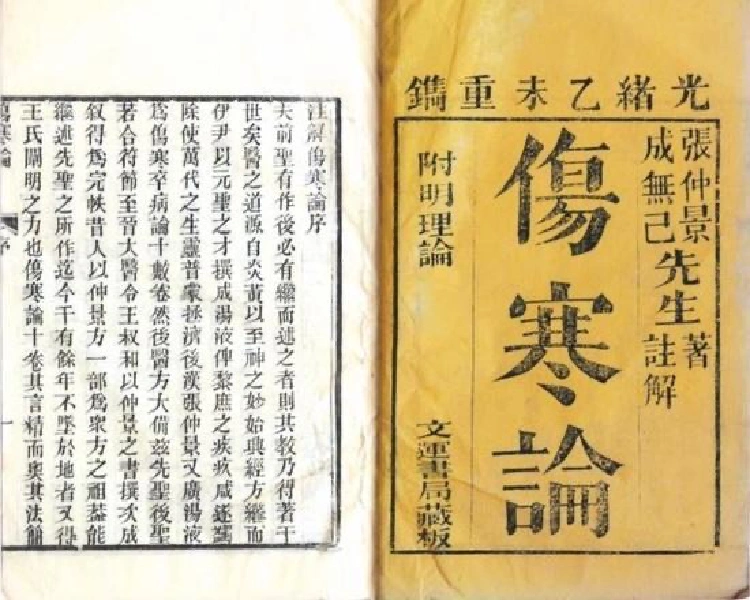 光緒乙未重鐫
張仲景
成無己
先生
著
註解
傷寒論
附明理論
文運書局藏板
注解傷寒論序
夫前聖有作後必有繼而述之者則其教乃得著于
世矣醫之道源自炎黃以至神之妙始興經方繼而
伊尹以元聖之才撰成湯液俾黎庶之疾疚咸遂蠲
除使萬代之生靈普蒙拯濟後漢張仲景又廣湯液
爲傷寒卒病論十數卷然後醫方大備茲先聖後聖
若合符節至晉大醫令王叔和以仲景之書撰次成
敘得爲完帙昔人以仲景方一部爲衆方之祖蓋能
繼述先聖之所作迄今千有餘年不墜於地者又得
王氏闡明之力也傷寒論十卷其言精而奧其法簡
傷寒論
序
一